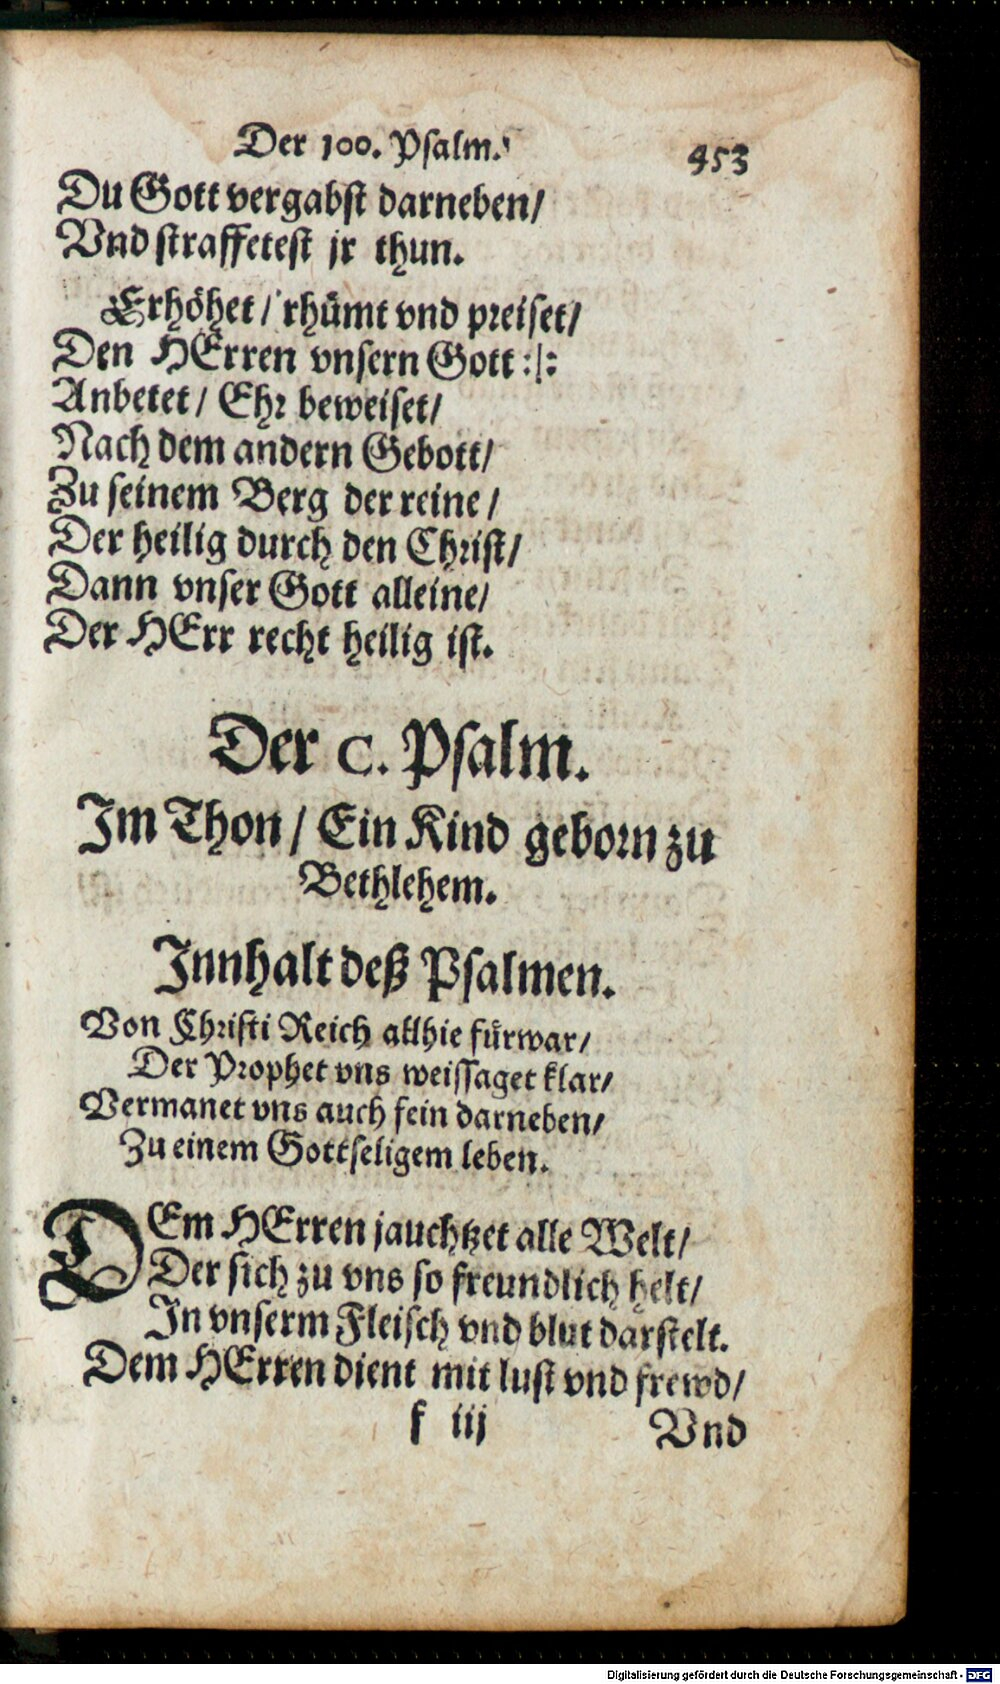 Der 100. Psalm.
453
Du Gott vergabst darneben/
Vnd straffetest jr thun.
Erhöhet/ rhümt vnd preiset/
Den HErren vnsern Gott :|:
Anbetet/ Ehr beweiset/
Nach dem andern Gebott/
Zu seinem Berg der reine/
Der heilig durch den Christ/
Dann vnser Gott alleine/
Der HErr recht heilig ist.
Der C. Psalm.
Im Thon/ Ein Kind geborn zu
Bethlehem.
Innhalt deß Psalmen.
Von Christi Reich allhie fürwar/
Der Prophet vns weissaget klar/
Vermanet vns auch fein darneben/
Zu einem Gottseligem leben.
DEm HErren jauchtzet alle Welt/
Der sich zu vns so freundlich helt/
In vnserm Fleisch vnd blut darstelt.
Dem HErren dient mit lust vnd frewd/
f iij
Vnd
Digitalisierung gefördert durch die Deutsche Forschungsgemeinschaft - DFG